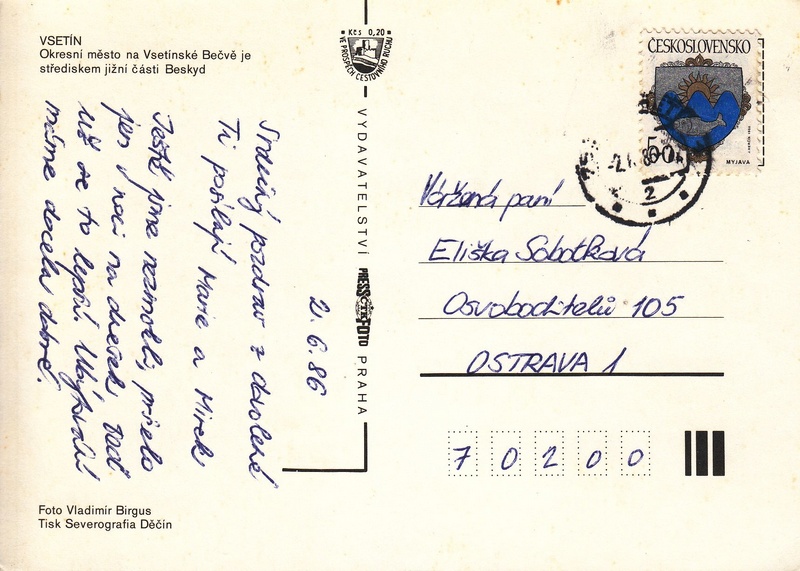 VSETÍN
Okresní město na Vsetínské Bečvě je
střediskem jižní části Beskyd
21.6.86
Srdečný pozdrav z dovolené
Ti posílají Marie a Mirek
Ještě jsme nezmokli, pršelo
jen v noci na dnešek. Teď
už se to lepší. Ubytování
máme docela dobré.
Foto Vladimír Birgus
Tisk Severografia Děčín
Kčs 0,20
VE PROSPĚCH CESTOVNÍHO RUCHU
VYDAVATELSTVÍ PRESSFOTO PRAHA
ČTK
ČESKOSLOVENSKO
50h
MYJAVA
2
Vážená paní
Eliška Sobotková
Osvoboditelů 105
OSTRAVA 1
70200